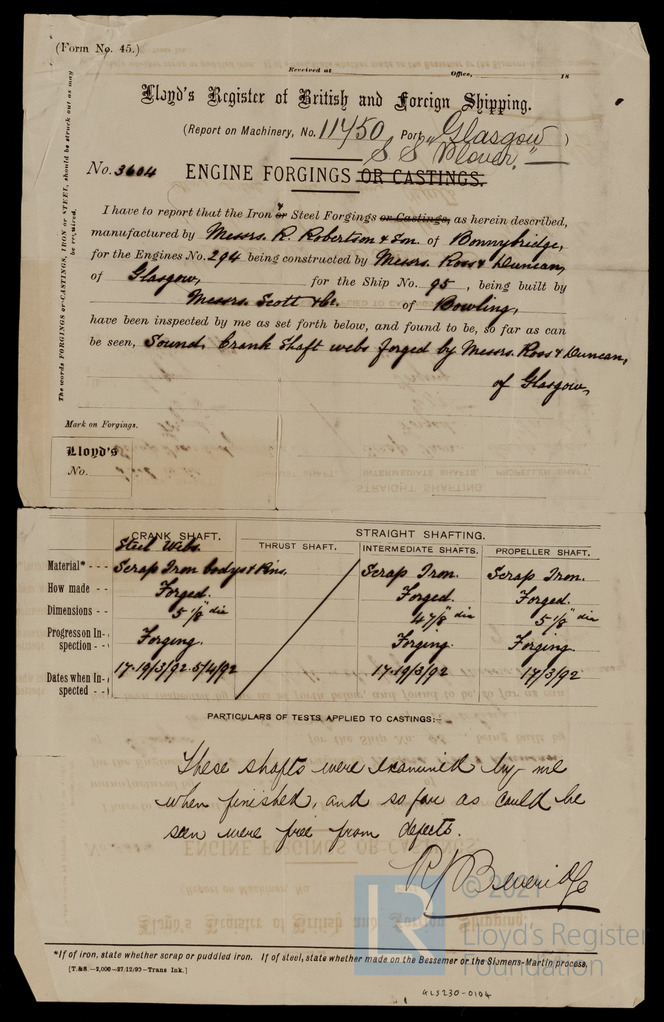 (Form No. 45.)
Received at Office, 18
Lloyd's Register of British and Foreign Shipping.
(Report on Machinery, No. 11450 Port Glasgow )
S S "Plover,"
No. 3604 ENGINE FORGINGS OR CASTINGS.
The words FORGINGS or CASTINGS, IRON or STEEL, should be struck out as may be required.
I have to report that the Iron & or Steel Forgings or Castings, as herein described,
manufactured by Messrs. R. Robertson & Son of Bonnybridge,
for the Engines No. 294 being constructed by Messrs. Ross & Duncan,
of Glasgow, for the Ship No. 95, being built by
Messrs. Scott & Co. of Bowling,
have been inspected by me as set forth below, and found to be, so far as can
be seen, Sound. Crank Shaft webs forged by Messrs. Ross & Duncan,
of Glasgow,
Mark on Forgings.
Lloyd's
No.
CRANK SHAFT. STRAIGHT SHAFTING.
THRUST SHAFT. INTERMEDIATE SHAFTS. PROPELLER SHAFT.
Steel Webs.
Material* - - - Scrap Iron bodys & Pins. Scrap Iron. Scrap Iron.
How made - - Forged. Forged. Forged.
Dimensions - - 5 1/8" dia 4 7/8" dia 5 1/8" dia
Progress on Inspection - - Forging. Forging. Forging.
Dates when Inspected - - 17-19/3/92 5/4/92 17-19/3/92 17/3/92
PARTICULARS OF TESTS APPLIED TO CASTINGS:—
These shafts were examined by me
when finished, and so far as could be
seen were free from defects.
R J Beveridge
© 2021
Lloyd's Register
Foundation
*If of iron, state whether scrap or puddled iron. If of steel, state whether made on the Bessemer or the Siemens-Martin process.
[T.&S.—2,000—27/12/90—Trans Ink.]
GLS230-0104